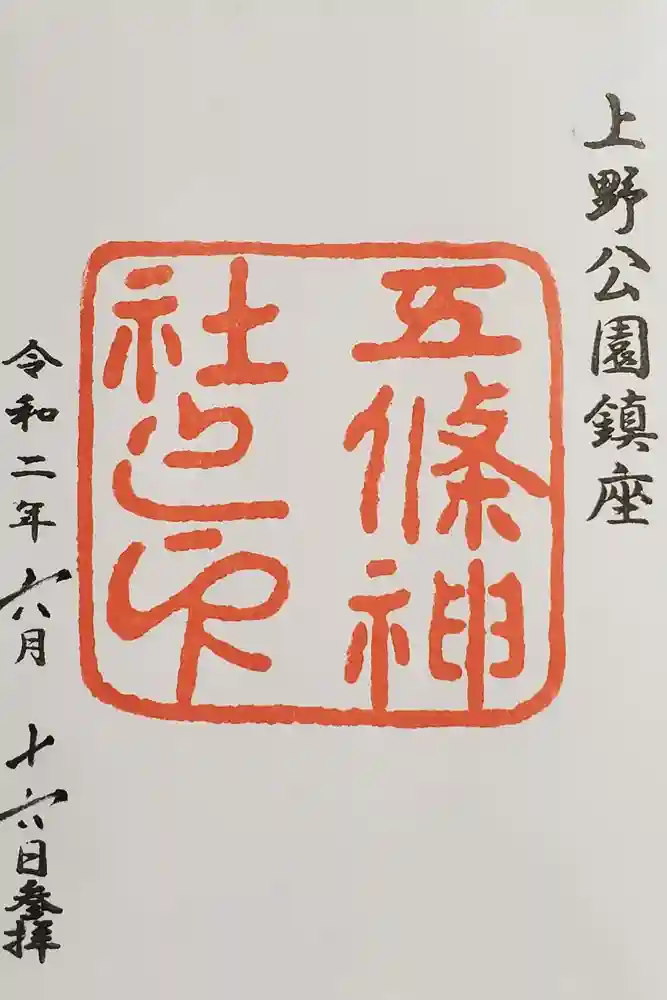 上野公園鎮座
五條神
社之印
令和二年六月十六日参拝